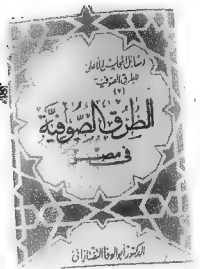 رسائل المجلس الأعلى
للطرق الصوفية
(٢)
الطرق الصوفية
فى مصر
الدكتور أبو الوفا التفتازانى